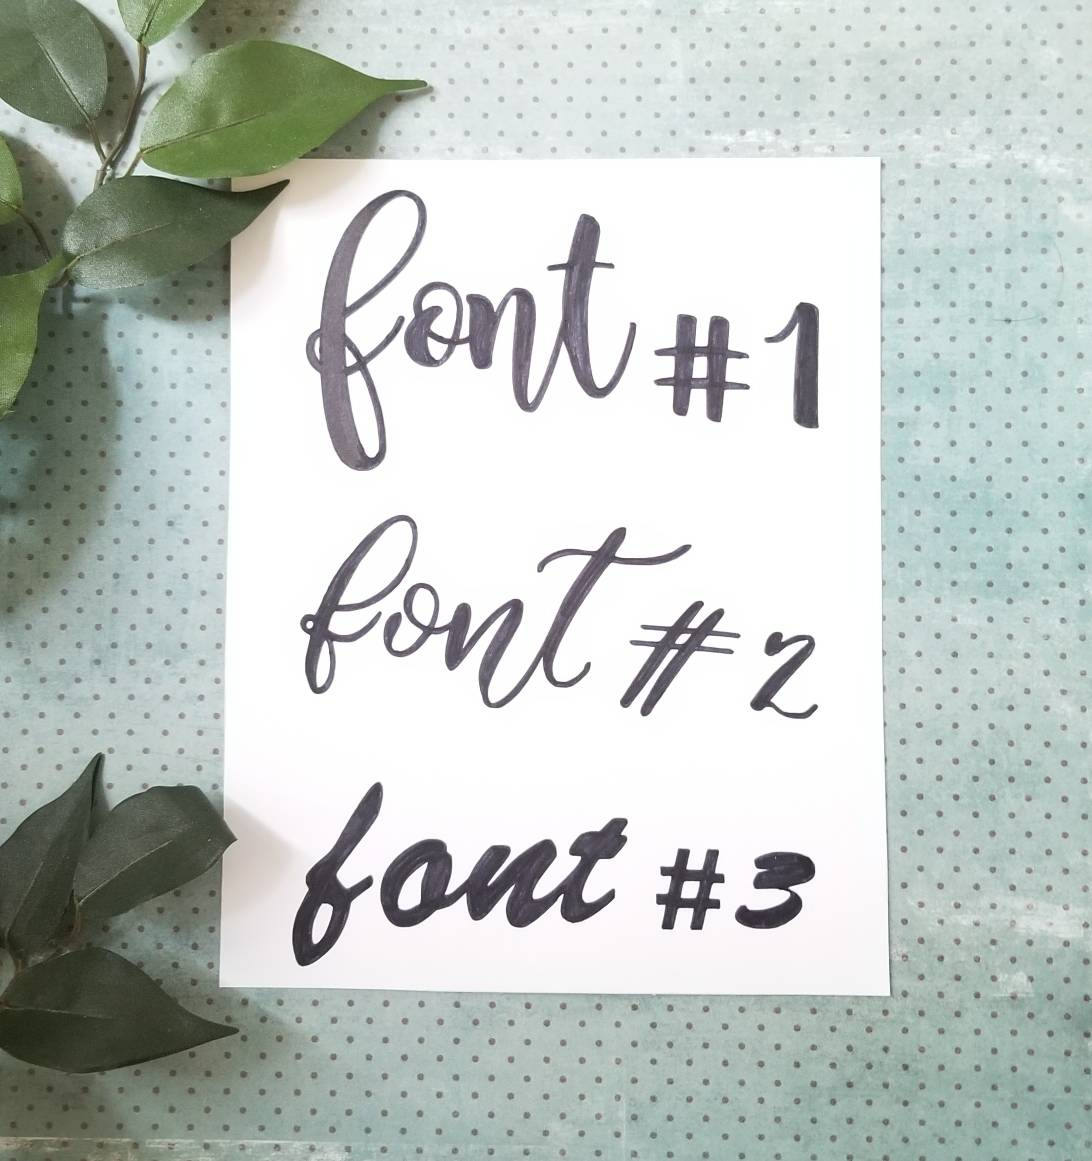 font #1
font #2
font #3